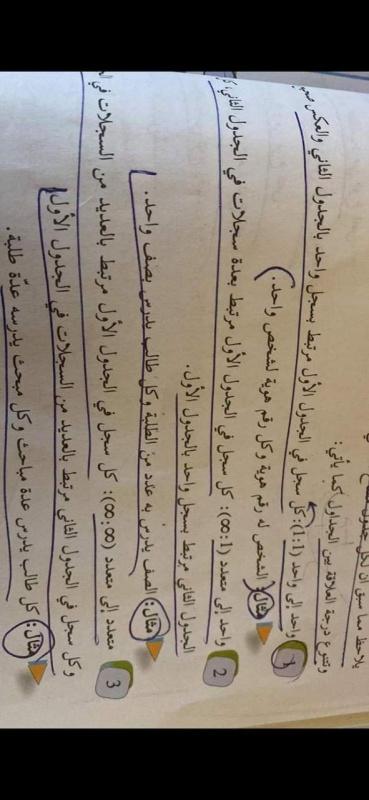 يلاحظ مما سبق أن لكل جدول
وتتنوع درجة العلاقة بين الجداول كما يأتي:
1 واحد إلى واحد (1:1): كل سجل في الجدول الأول مرتبط بسجل واحد بالجدول الثاني والعكس صحيح
مثال: الشخص له رقم هوية وكل رقم هوية لشخص واحد.
2 واحد إلى متعدد (1:∞): كل سجل في الجدول الأول مرتبط بعدة سجلات في الجدول الثاني،
الجدول الثاني مرتبط بسجل واحد بالجدول الأول.
مثال: الصف يدرس به عدد من الطلبة وكل طالب يدرس بصف واحد.
3 متعدد إلى متعدد (∞:∞): كل سجل في الجدول الأول مرتبط بالعديد من السجلات في
وكل سجل في الجدول الثاني مرتبط بالعديد من السجلات في الجدول الأول
مثال: كل طالب يدرس عدة مباحث وكل مبحث يدرسه عدّة طلبة.